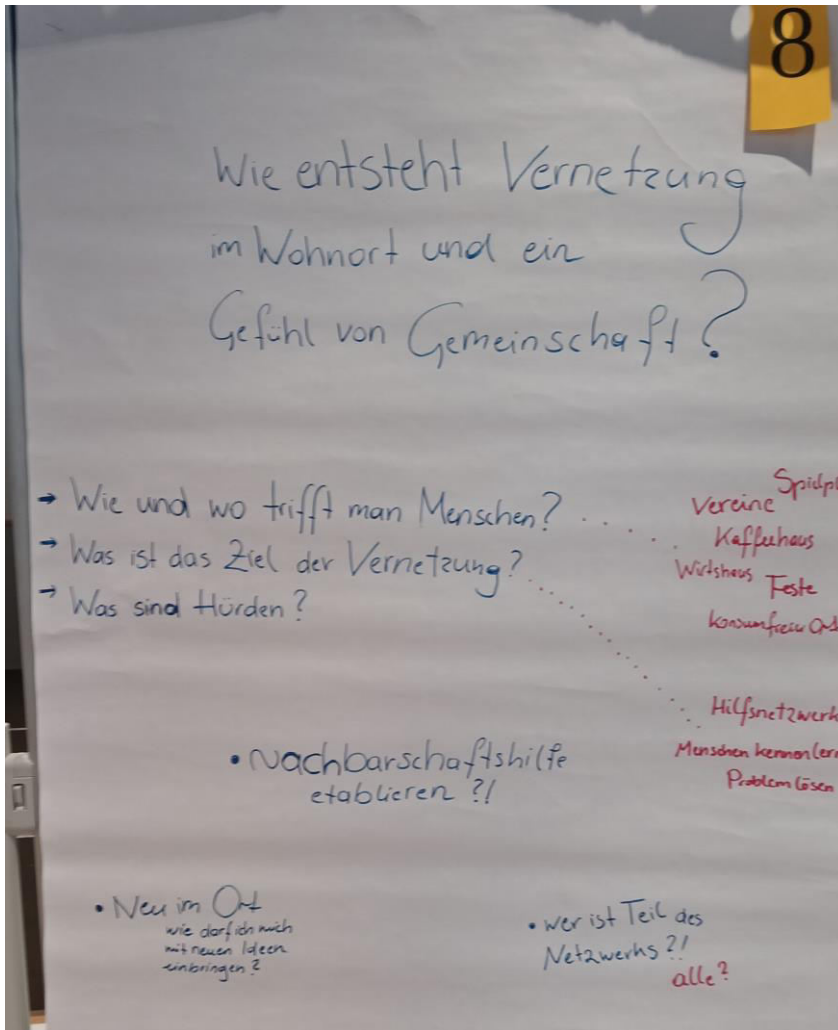 8
Wie entsteht Vernetzung
im Wohnort und ein
Gefühl von Gemeinschaft?
→ Wie und wo trifft man Menschen?
→ Was ist das Ziel der Vernetzung?
→ Was sind Hürden?
Spielpl
Vereine
Kaffeehaus
Wirtshaus Feste
konsumfreie Ort
Hilfsnetzwerk
Menschen kennenler
Problem lösen
• Nachbarschaftshilfe
etablieren?!
• Neu im Ort
wie darf ich mich
mit neuen Ideen
einbringen?
• wer ist Teil des
Netzwerks?!
alle?